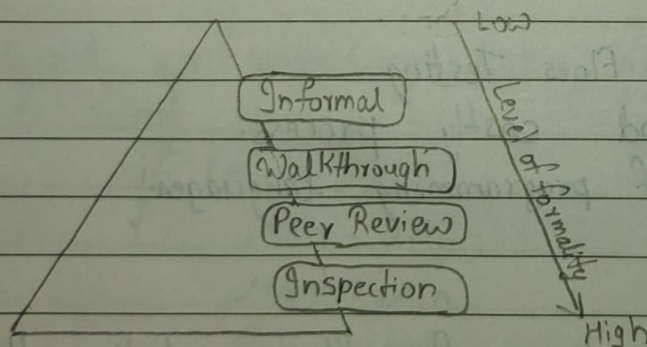 Low
Informal
Walkthrough
Peer Review
Inspection
Level of formality
High